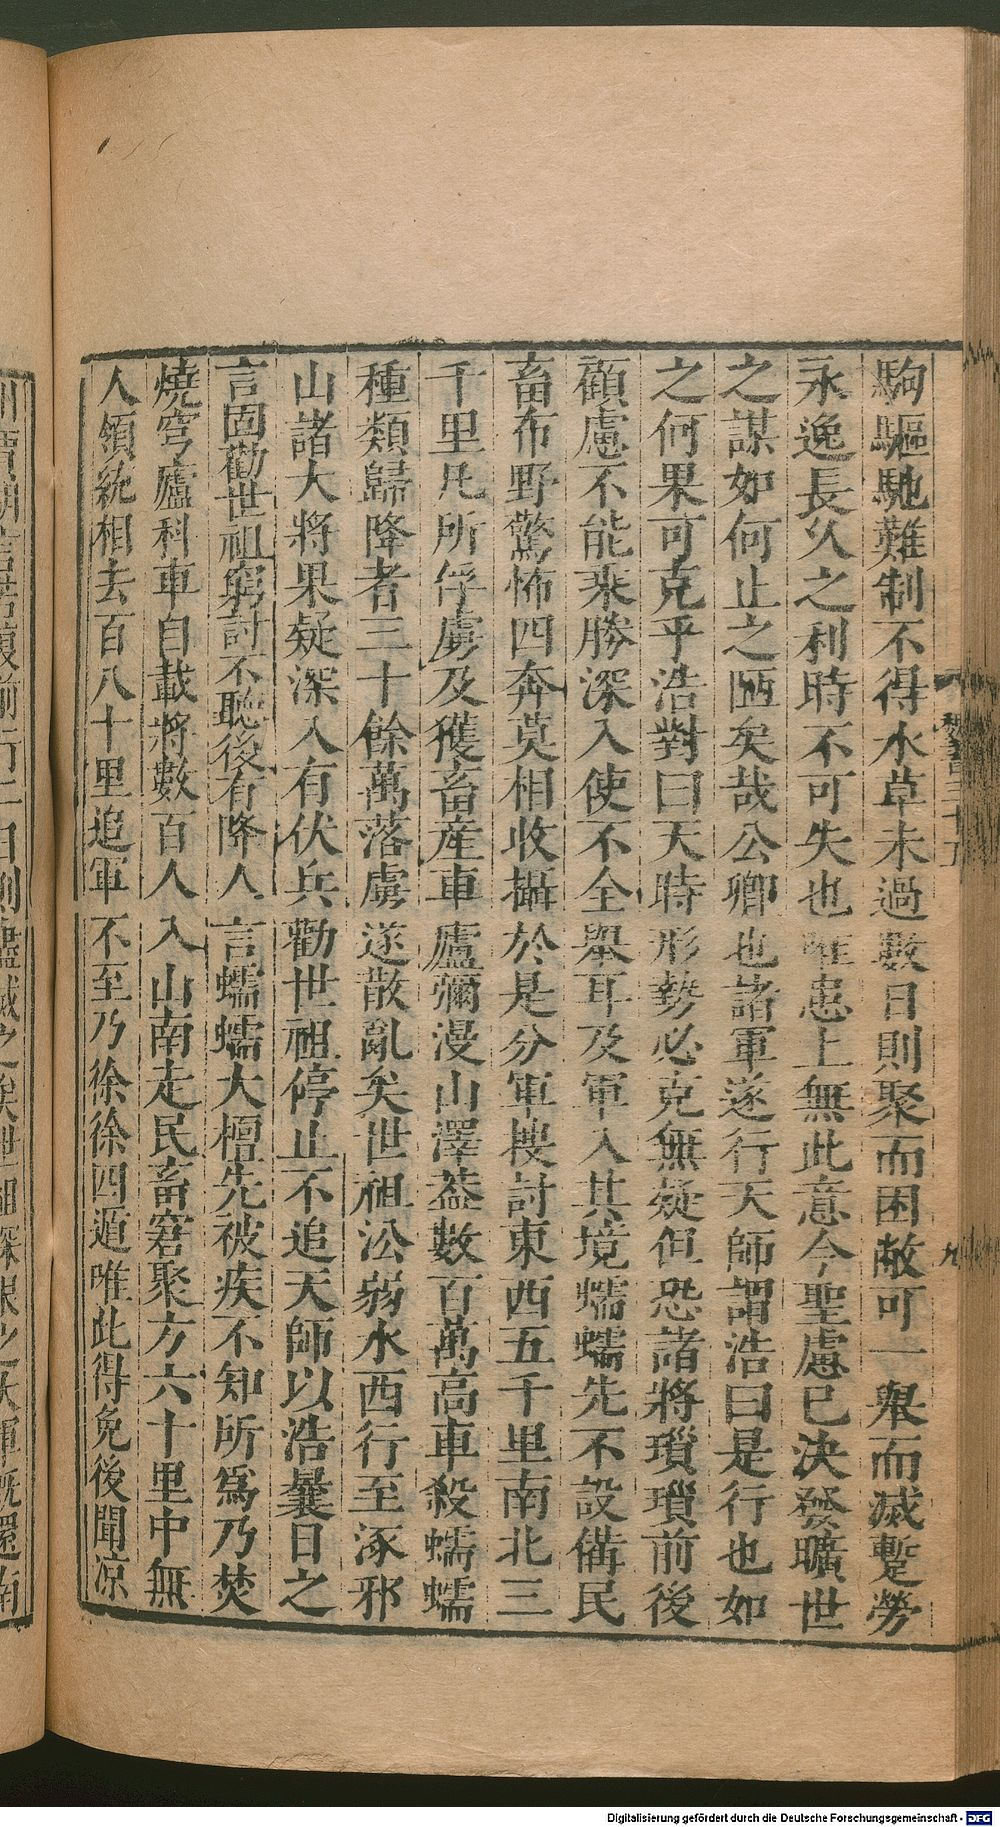 駒驅馳難制不得水草未過數日則聚而困敝可一舉而滅蹔勞
永逸長久之利時不可失也唯患上無此意今聖慮已決發曠世
之謀如何止之陋矣哉公卿也諸軍遂行天師謂浩曰是行也如
之何果可克乎浩對曰天時形勢必克無疑但恐諸將瑣瑣前後
顧慮不能乘勝深入使不全舉耳及軍入其境蠕蠕先不設備民
畜布野驚怖四奔莫相收攝於是分軍搜討東西五千里南北三
千里凡所俘虜及獲畜產車廬彌漫山澤葢數百萬高車殺蠕蠕
種類歸降者三十餘萬落虜遂散亂矣世祖㳂弱水西行至涿邪
山諸大將果疑深入有伏兵勸世祖停止不追天師以浩曩日之
言固勸世祖窮討不聽後有降人言蠕蠕大檀先被疾不知所爲乃焚
燒穹廬科車自載將數百人入山南走民畜窘聚方六十里中無
人領統相去百八十里追軍不至乃徐徐四遁唯此得免後聞凉
九
Digitalisierung gefördert durch die Deutsche Forschungsgemeinschaft - DFG